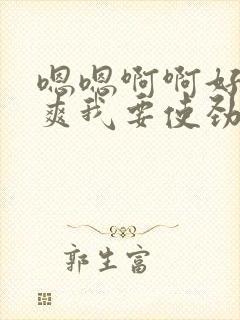 嗯嗯啊啊好
爽我要使劲
郭生富